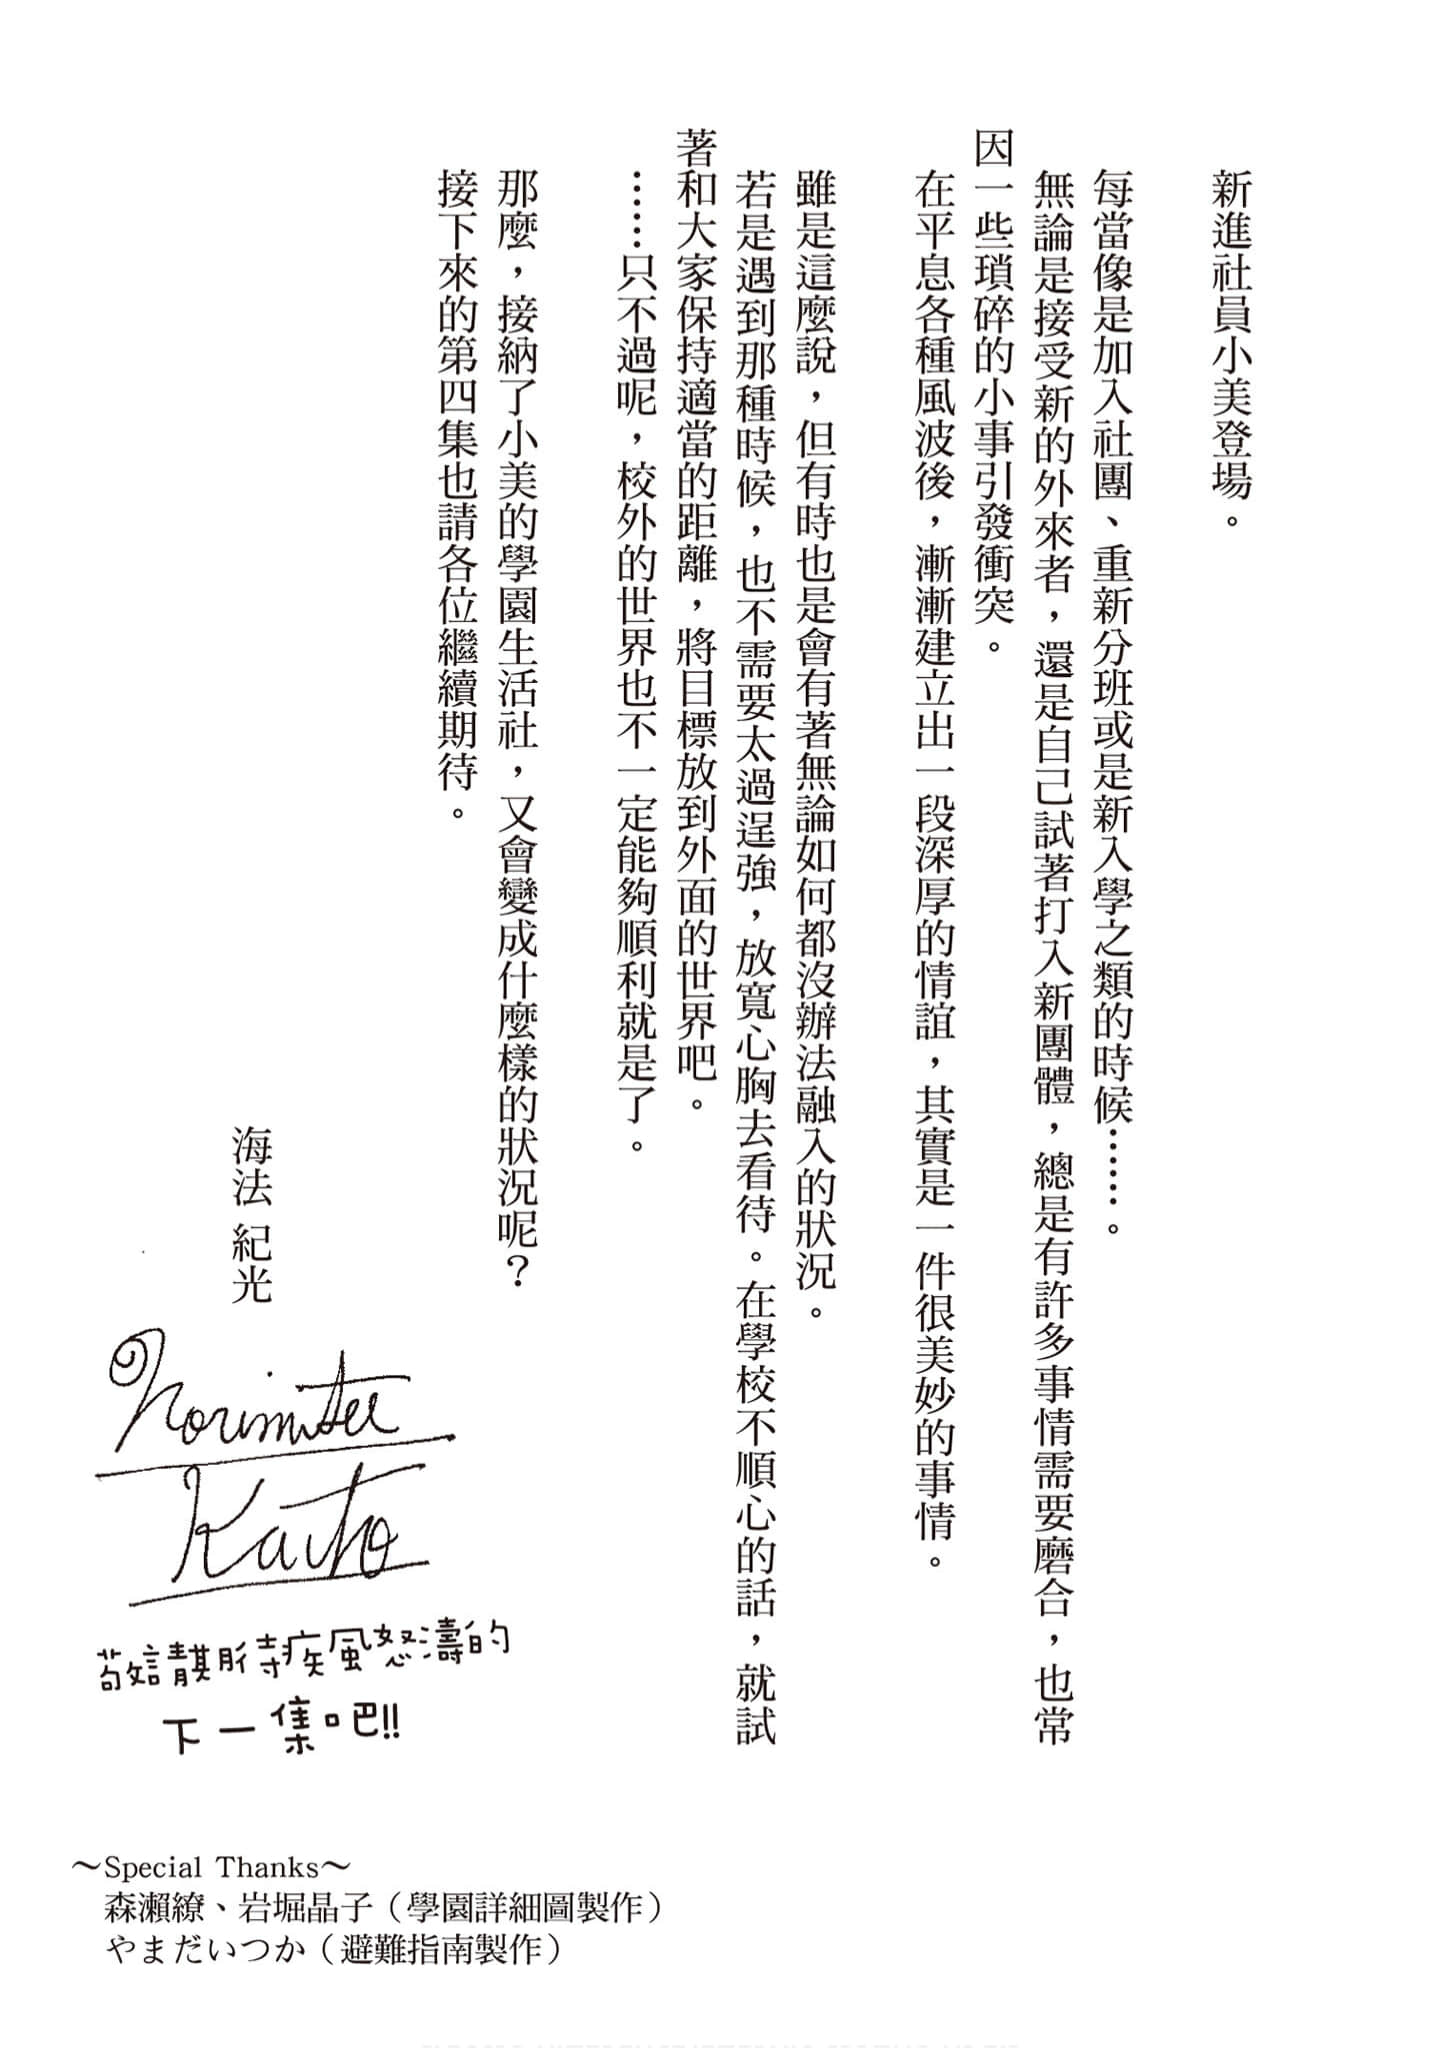 新進社員小美登場。
每當像是加入社團、重新分班或是新入學之類的時候……。
無論是接受新的外來者，還是自己試著打入新團體，總是有許多事情需要磨合，也常
因一些瑣碎的小事引發衝突。
在平息各種風波後，漸漸建立出一段深厚的情誼，其實是一件很美妙的事情。
雖是這麼說，但有時也是會有著無論如何都沒辦法融入的狀況。
若是遇到那種時候，也不需要太過逞強，放寬心胸去看待。在學校不順心的話，就試
著和大家保持適當的距離，將目標放到外面的世界吧。
……只不過呢，校外的世界也不一定能夠順利就是了。
那麼，接納了小美的學園生活社，又會變成什麼樣的狀況呢？
接下來的第四集也請各位繼續期待。
海法 紀光
Norimitsu
Kaiho
敬請期待疾風怒濤的
下一集吧!!
～Special Thanks～
森瀨繚、岩堀晶子（學園詳細圖製作）
やまだいつか（避難指南製作）